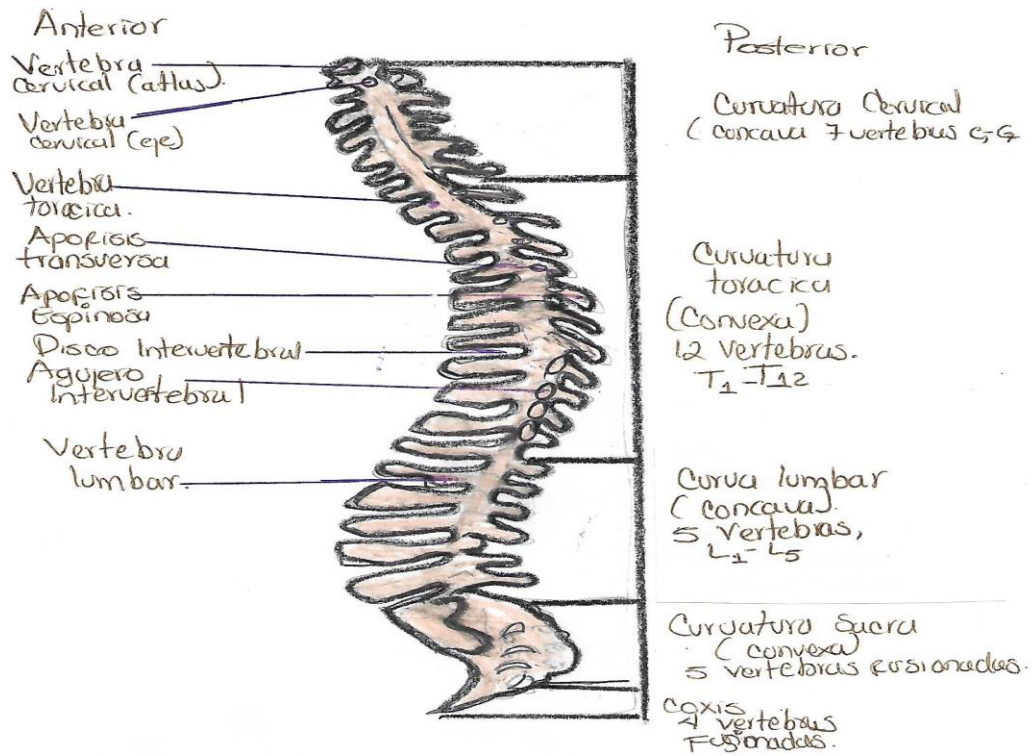 Anterior
Vertebra
cervical (atlas).
Vertebra
cervical (eje)
Vertebra
toracica.
Apofisis
transversa
Apofisis
Espinosa
Disco Intervertebral
Agujero
Intervertebral
Vertebra
lumbar.
Posterior
Curvatura Cervical
( concava 7 vertebras C1-C7
Curvatura
toracica
(Convexa)
12 Vertebras.
T1-T12
Curva lumbar
( concava).
5 Vertebras,
L1-L5
Curvatura Sacra
( convexa)
5 vertebras fusionadas.
coxis
4 vertebras
Fusionadas.